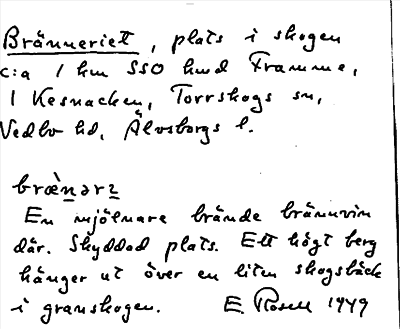 Bränneriet, plats i skogen
c:a 1 km SSO hmd Framme,
I Kesnacken, Torrskogs sn,
Vedbo hd, Älvsborgs l.
En mjölnare brände brännvin
där. Skyddad plats. Ett högt berg
hänger ut över en liten skogsbäck
i granskogen. E. Rosell 1949